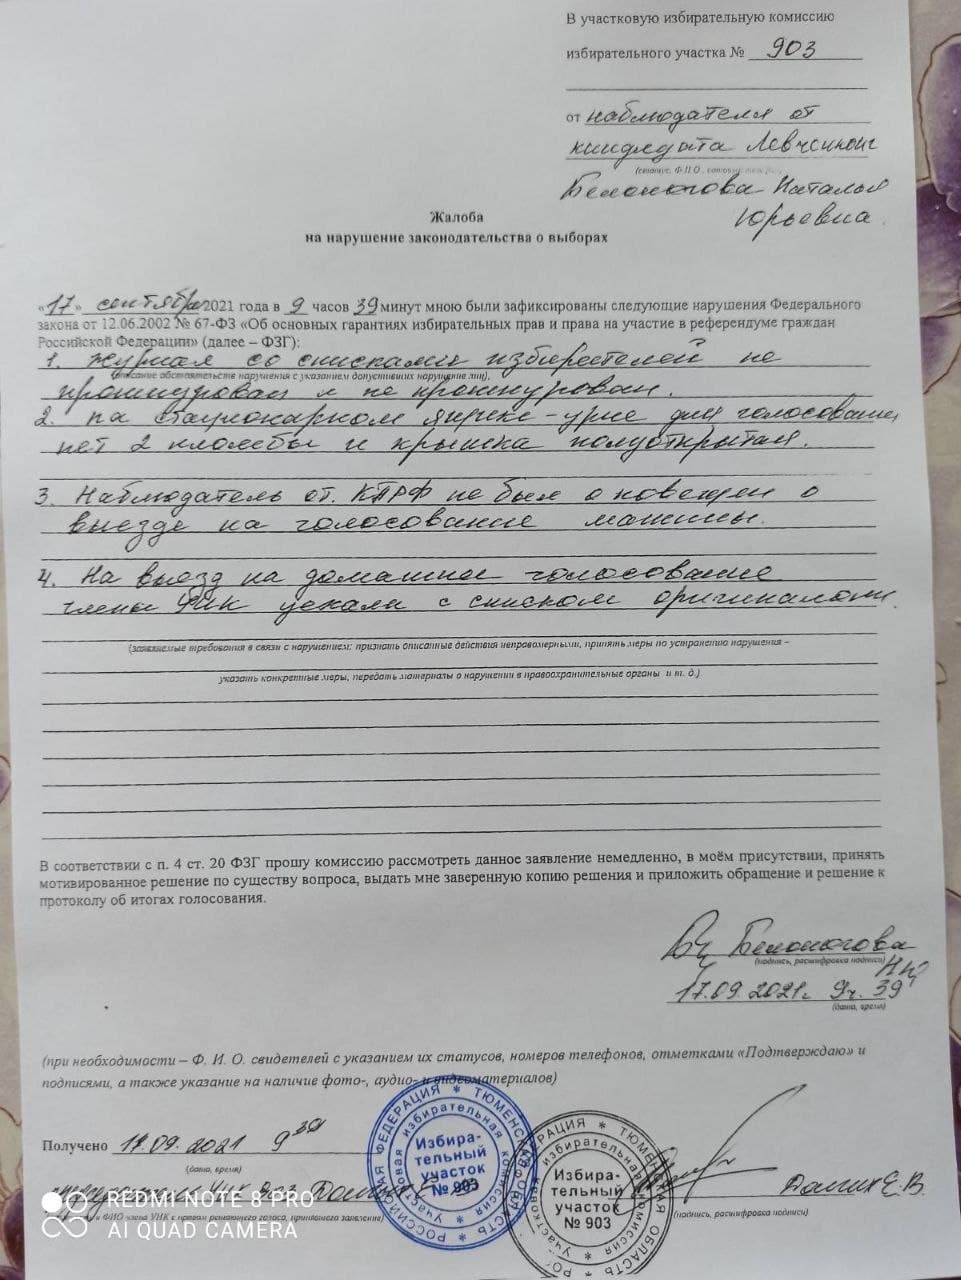 В участковую избирательную комиссию
избирательного участка № 903
от наблюдателя от
кандидата
(статус, Ф.И.О.,
Белоногова Наталья
Юрьевна.
Жалоба
на нарушение законодательства о выборах
«17» сентября 2021 года в 9 часов 39 минут мною были зафиксированы следующие нарушения Федерального
закона от 12.06.2002 № 67-ФЗ «Об основных гарантиях избирательных прав и права на участие в референдуме граждан
Российской Федерации» (далее – ФЗГ):
1. Журнал со списками избирателей не
(описание обстоятельств нарушения с указанием допустивших нарушение лиц).
прошнурован и не пронумерован.
2. на стационарном ящике-урне для голосования
нет 2 пломбы и крышка полуоткрытая.
3. Наблюдатель от КПРФ не был оповещен о
выезде на голосование машины.
4. На выезд на домашнее голосование
члены УИК уехали с списком оригиналом.
(заявляемые требования в связи с нарушением: признать описанные действия неправомерными, принять меры по устранению нарушения –
указать конкретные меры, передать материалы о нарушении в правоохранительные органы и т. д.)
В соответствии с п. 4 ст. 20 ФЗГ прошу комиссию рассмотреть данное заявление немедленно, в моём присутствии, принять
мотивированное решение по существу вопроса, выдать мне заверенную копию решения и приложить обращение и решение к
протоколу об итогах голосования.
Белоногова
(подпись, расшифровка подписи)
17.09.2021г. 9ч. 39
(дата, время)
(при необходимости – Ф. И. О. свидетелей с указанием их статусов, номеров телефонов, отметками «Подтверждаю» и
подписями, а также указание на наличие фото-, аудио- и видеоматериалов)
Получено 17.09.2021 9 39
(дата, время)
УИК 903
и ФИО члена УИК с правом решающего голоса, принявшего заявление)
Избира-
тельный
участок
№ 903
Избира-
тельный
участок
№ 903
Долгих Е.В.
(подпись, расшифровка подписи)
REDMI NOTE 8 PRO
AI QUAD CAMERA